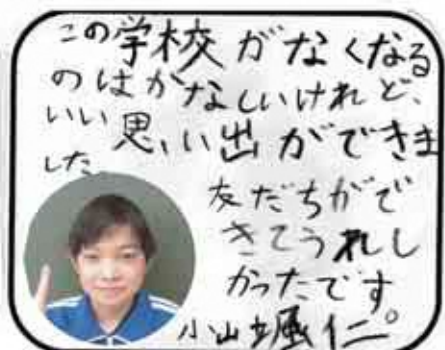 この学校がなくなる
のはかなしいけれど、
いい思い出ができま
した
友だちがで
きてうれし
かったです。
小山颯仁